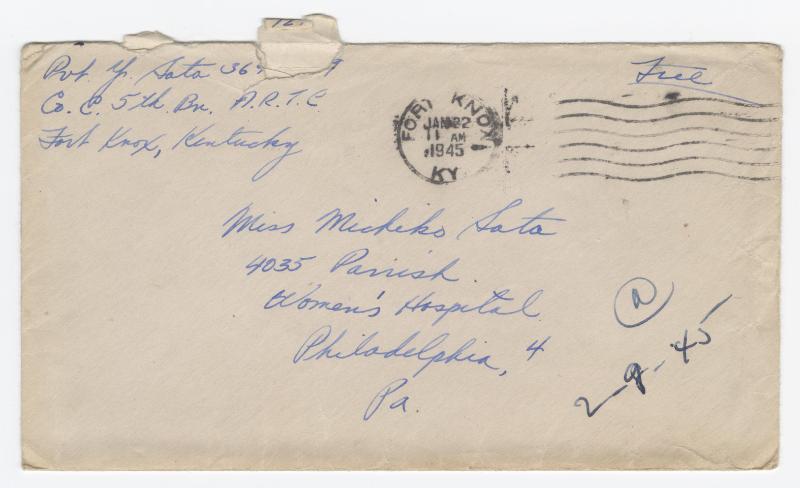 Pvt. Y. Sata 369
Co. C. 5th. Bn. A.R.T.C
Fort Knox, Kentucky
Free
FORT KNOX
JAN 22
11 AM
1945
KY.
Miss Michiko Sata
4035 Parrish
Women's Hospital
Philadelphia, 4
Pa.
a
2-9-45